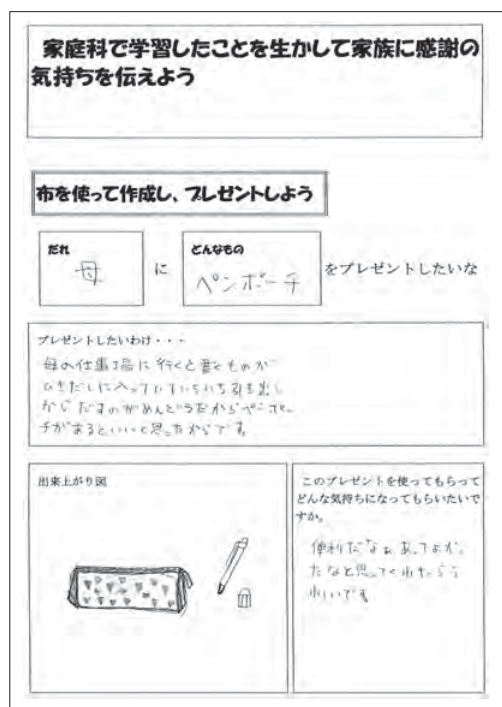 家庭科で学習したことを生かして家族に感謝の
気持ちを伝えよう
布を使って作成し、プレゼントしよう
だれ
母
に
どんなもの
ペンポーチ
をプレゼントしたいな
プレゼントしたいわけ・・・
母の仕事場に行くと書くものが
ひきだしに入っていていちいち引き出し
からだすのがめんどうだからペンポー
チがあるといいと思ったからです。
出来上がり図
このプレゼントを使ってもらって
どんな気持ちになってもらいたいで
すか。
便利だなぁあってよかっ
たなと思ってくれたらう
れしいです